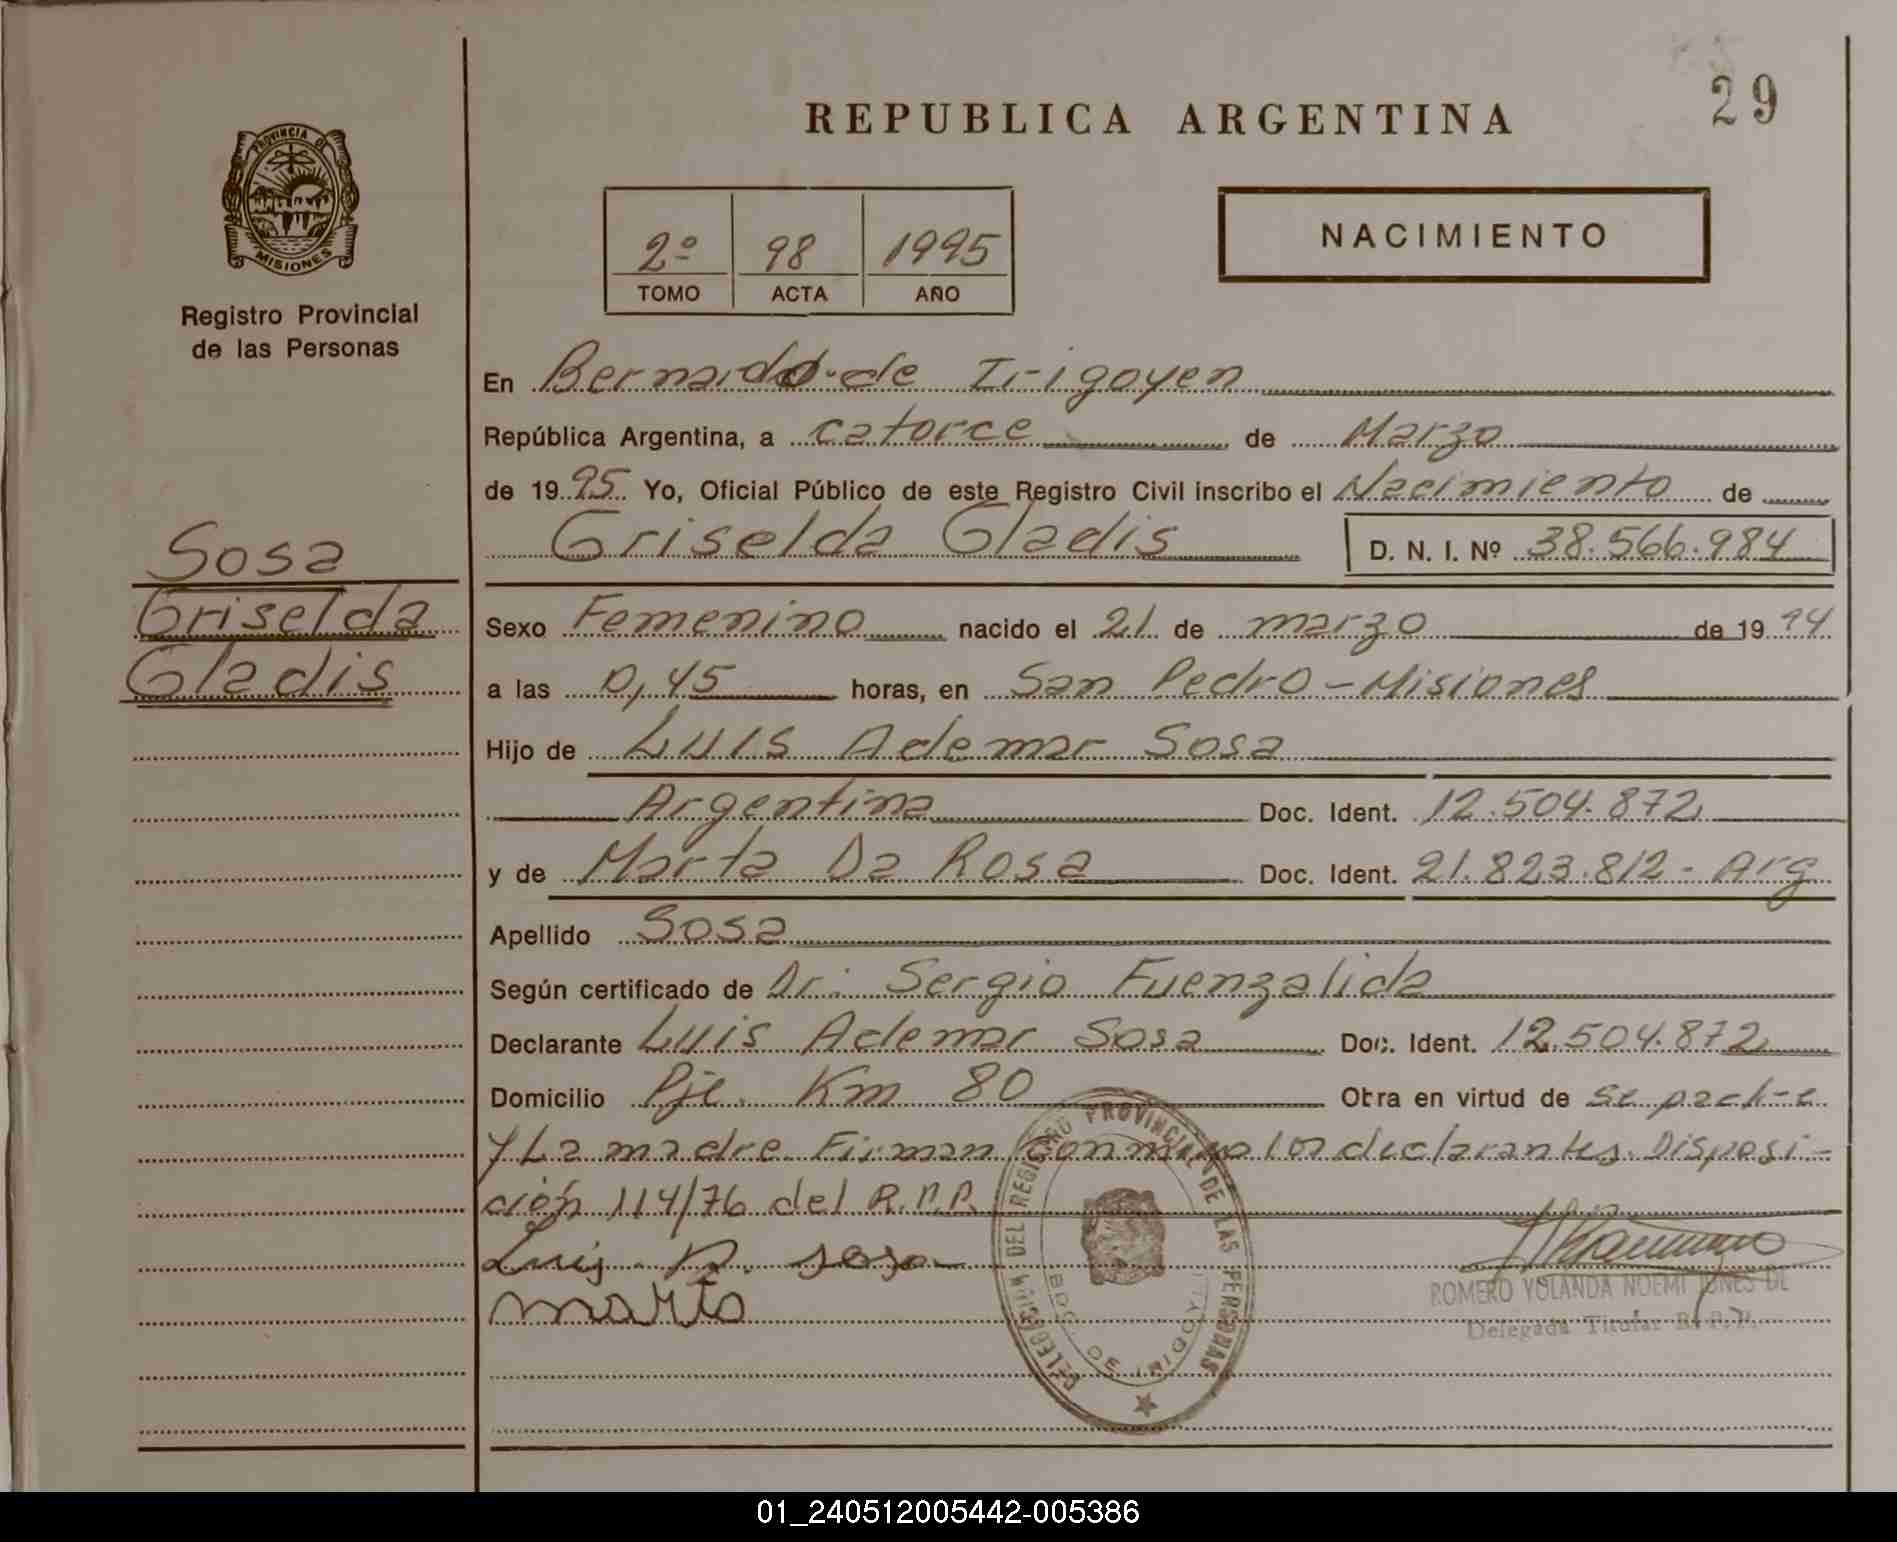 29
REPUBLICA ARGENTINA
PROVINCIA D
MISIONES
Registro Provincial
de las Personas
2º 98 1995
TOMO ACTA AÑO
NACIMIENTO
En Bernardo de Irigoyen
República Argentina, a catorce de Marzo
de 1995 Yo, Oficial Público de este Registro Civil inscribo el Nacimiento de
Griselda Gladis D. N. I. Nº 38.566.984
Sosa
Griselda
Gladis
Sexo Femenino nacido el 21 de marzo de 1994
a las 0,45 horas, en San Pedro - Misiones
Hijo de Luis Ademar Sosa
Argentina Doc. Ident. 12.504.872
y de Marta Da Rosa Doc. Ident. 21.823.812 - Arg
Apellido Sosa
Según certificado de Dr. Sergio Fuenzalida
Declarante Luis Ademar Sosa Doc. Ident. 12.504.872
Domicilio Pje. Km 80 Obra en virtud de se padre
y La madre Firman conmigo los declarantes. Disposi-
ción 114/76 del R.P.P.
Luis A. sosa
marta
DELEGACION DEL REGISTRO PROVINCIAL DE LAS PERSONAS
BDO. DE IRIGOYEN
ROMERO YOLANDA NOEMI JONES DE
Delegada Titular R.P.P.
01_240512005442-005386